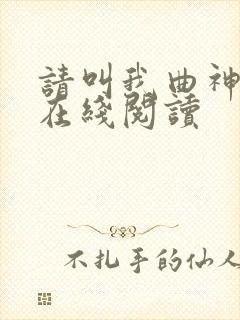 請叫我曲神
在綫閱讀
不扎手的仙人